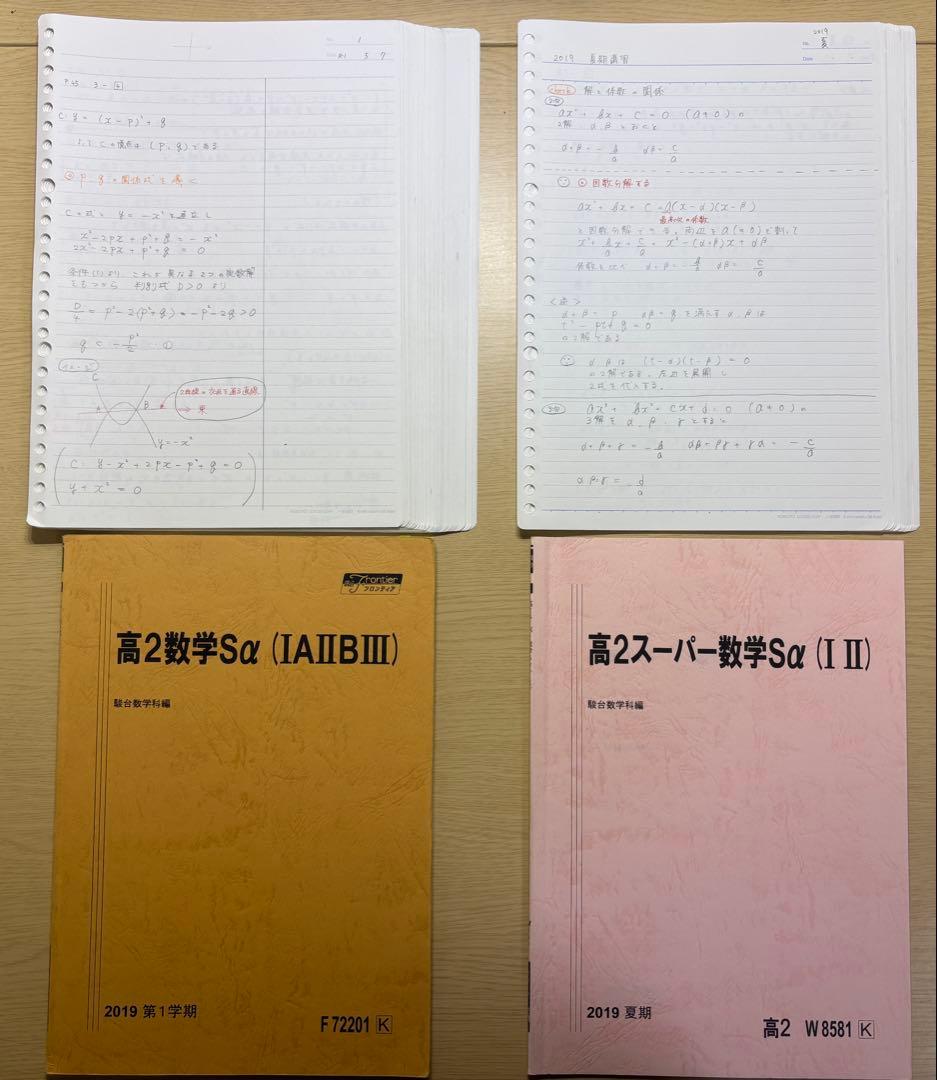 No. 1
P.45 3-4
C: y = (x-p)²+q
よって Cの頂点は (p, q) である
p, qの関係式を導く
Cの式と y = -x² を連立し
x²-2px+p²+q = -x²
2x²-2px+p²+q = 0
条件(1)より、これが異なる2つの実数解
をもつから 判別式 D>0 より
D/4 = p²-2(p²+q) = -p²-2q>0
q < -p²/2 …①
C
A
B
2曲線の交点を通る直線
→ 束
y=-x²
C: y-x²+2px-p²+q = 0
y+x² = 0
2019
No. 夏
2019 夏期講習
Date
check 解と係数の関係
2次
ax²+bx+c=0 (a≠0) の
2解 α, β とおくと
α+β = -b/a αβ = c/a
因数分解する
ax²+bx+c=a(x-α)(x-β)
最高次の係数
と因数分解できる。両辺を a(≠0) で割って
x²+b/a x+c/a = x²-(α+β)x+αβ
係数を比べ α+β = -b/a αβ = c/a
<逆>
α+β = p αβ = q を満たす α, β は
t²-pt+q = 0
の2解である
α, β は (t-α)(t-β) = 0
の2解である。左辺を展開し
2式を代入する。
3次
ax³+bx²+cx+d=0 (a≠0) の
3解を α, β, γ とすると
α+β+γ = -b/a αβ+βγ+γα = -c/a
αβγ = -d/a
Frontier
フロンティア
高2数学Sα(ⅠAⅡBⅢ)
駿台数学科編
2019 第1学期
F72201 K
高2スーパー数学Sα(Ⅰ Ⅱ)
駿台数学科編
2019 夏期
高2 W8581 K